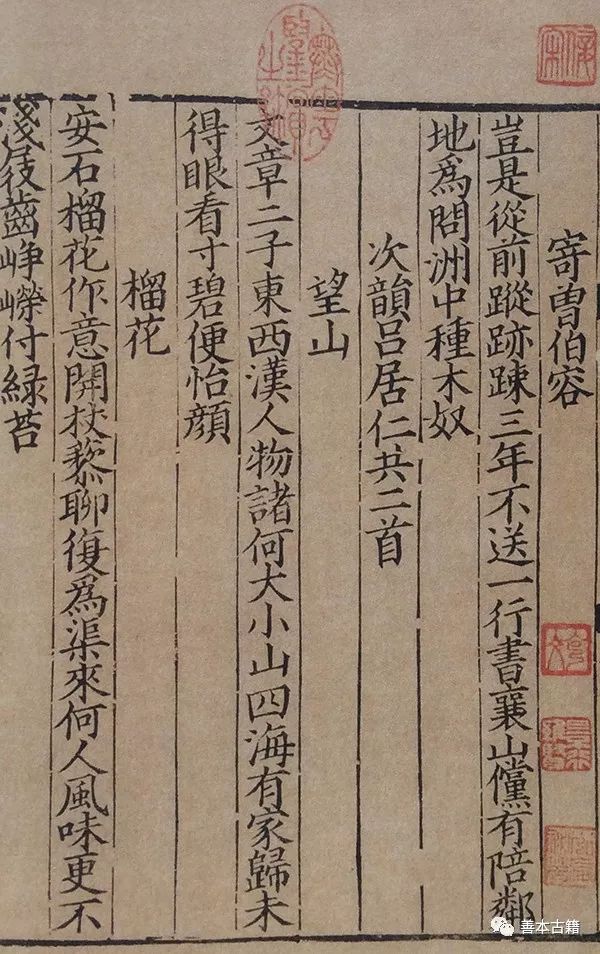 寄曾伯容
豈是從前蹤跡踈三年不送一行書襄山儻有陪鄰
地爲問洲中種木奴
次韻呂居仁共二首
望山
文章二子東西漢人物諸何大小山四海有家歸未
得眼看寸碧便怡顔
榴花
安石榴花作意開杖藜聊復爲渠來何人風味更不
淺屐齒崢嶸付緑苔
善本古籍